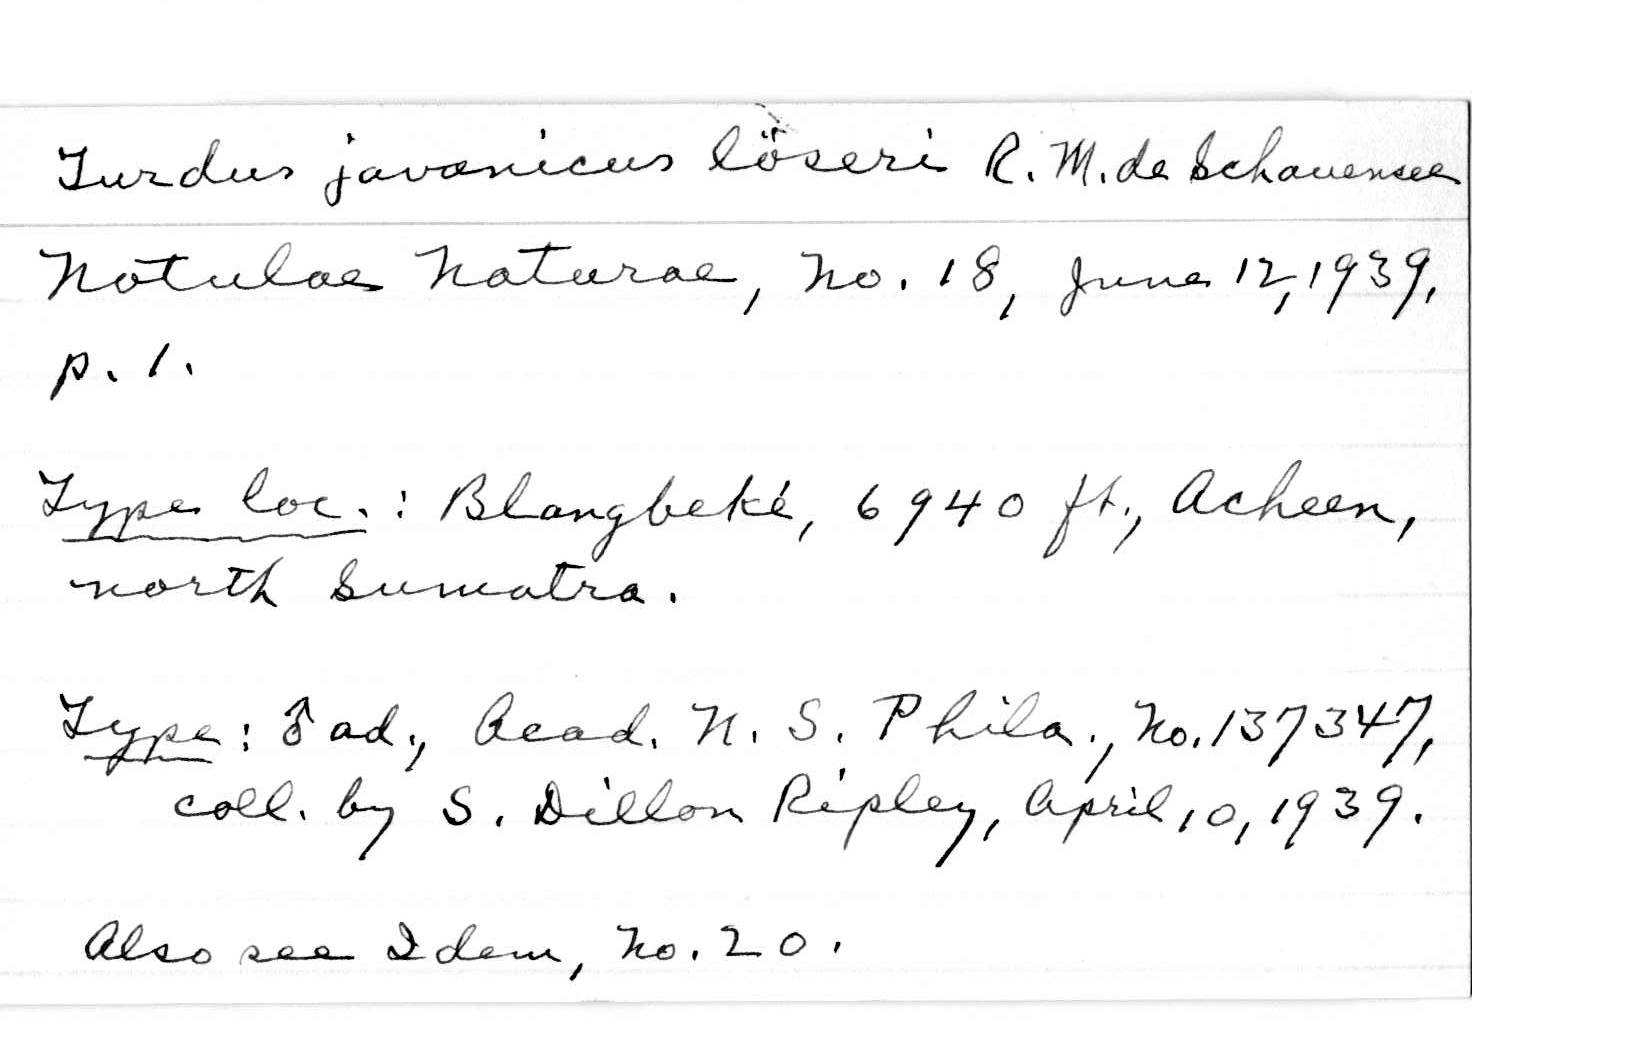 Turdus javanicus löseri R. M. de Schauensee
Notulae Naturae, No. 18, June 12, 1939,
p. 1.
Type loc.: Blangbeké, 6940 ft., Acheen,
north Sumatra.
Type: ♂ ad., Acad. N. S. Phila., No. 137347,
coll. by S. Dillon Ripley, April 10, 1939.
Also see Idem, No. 20.